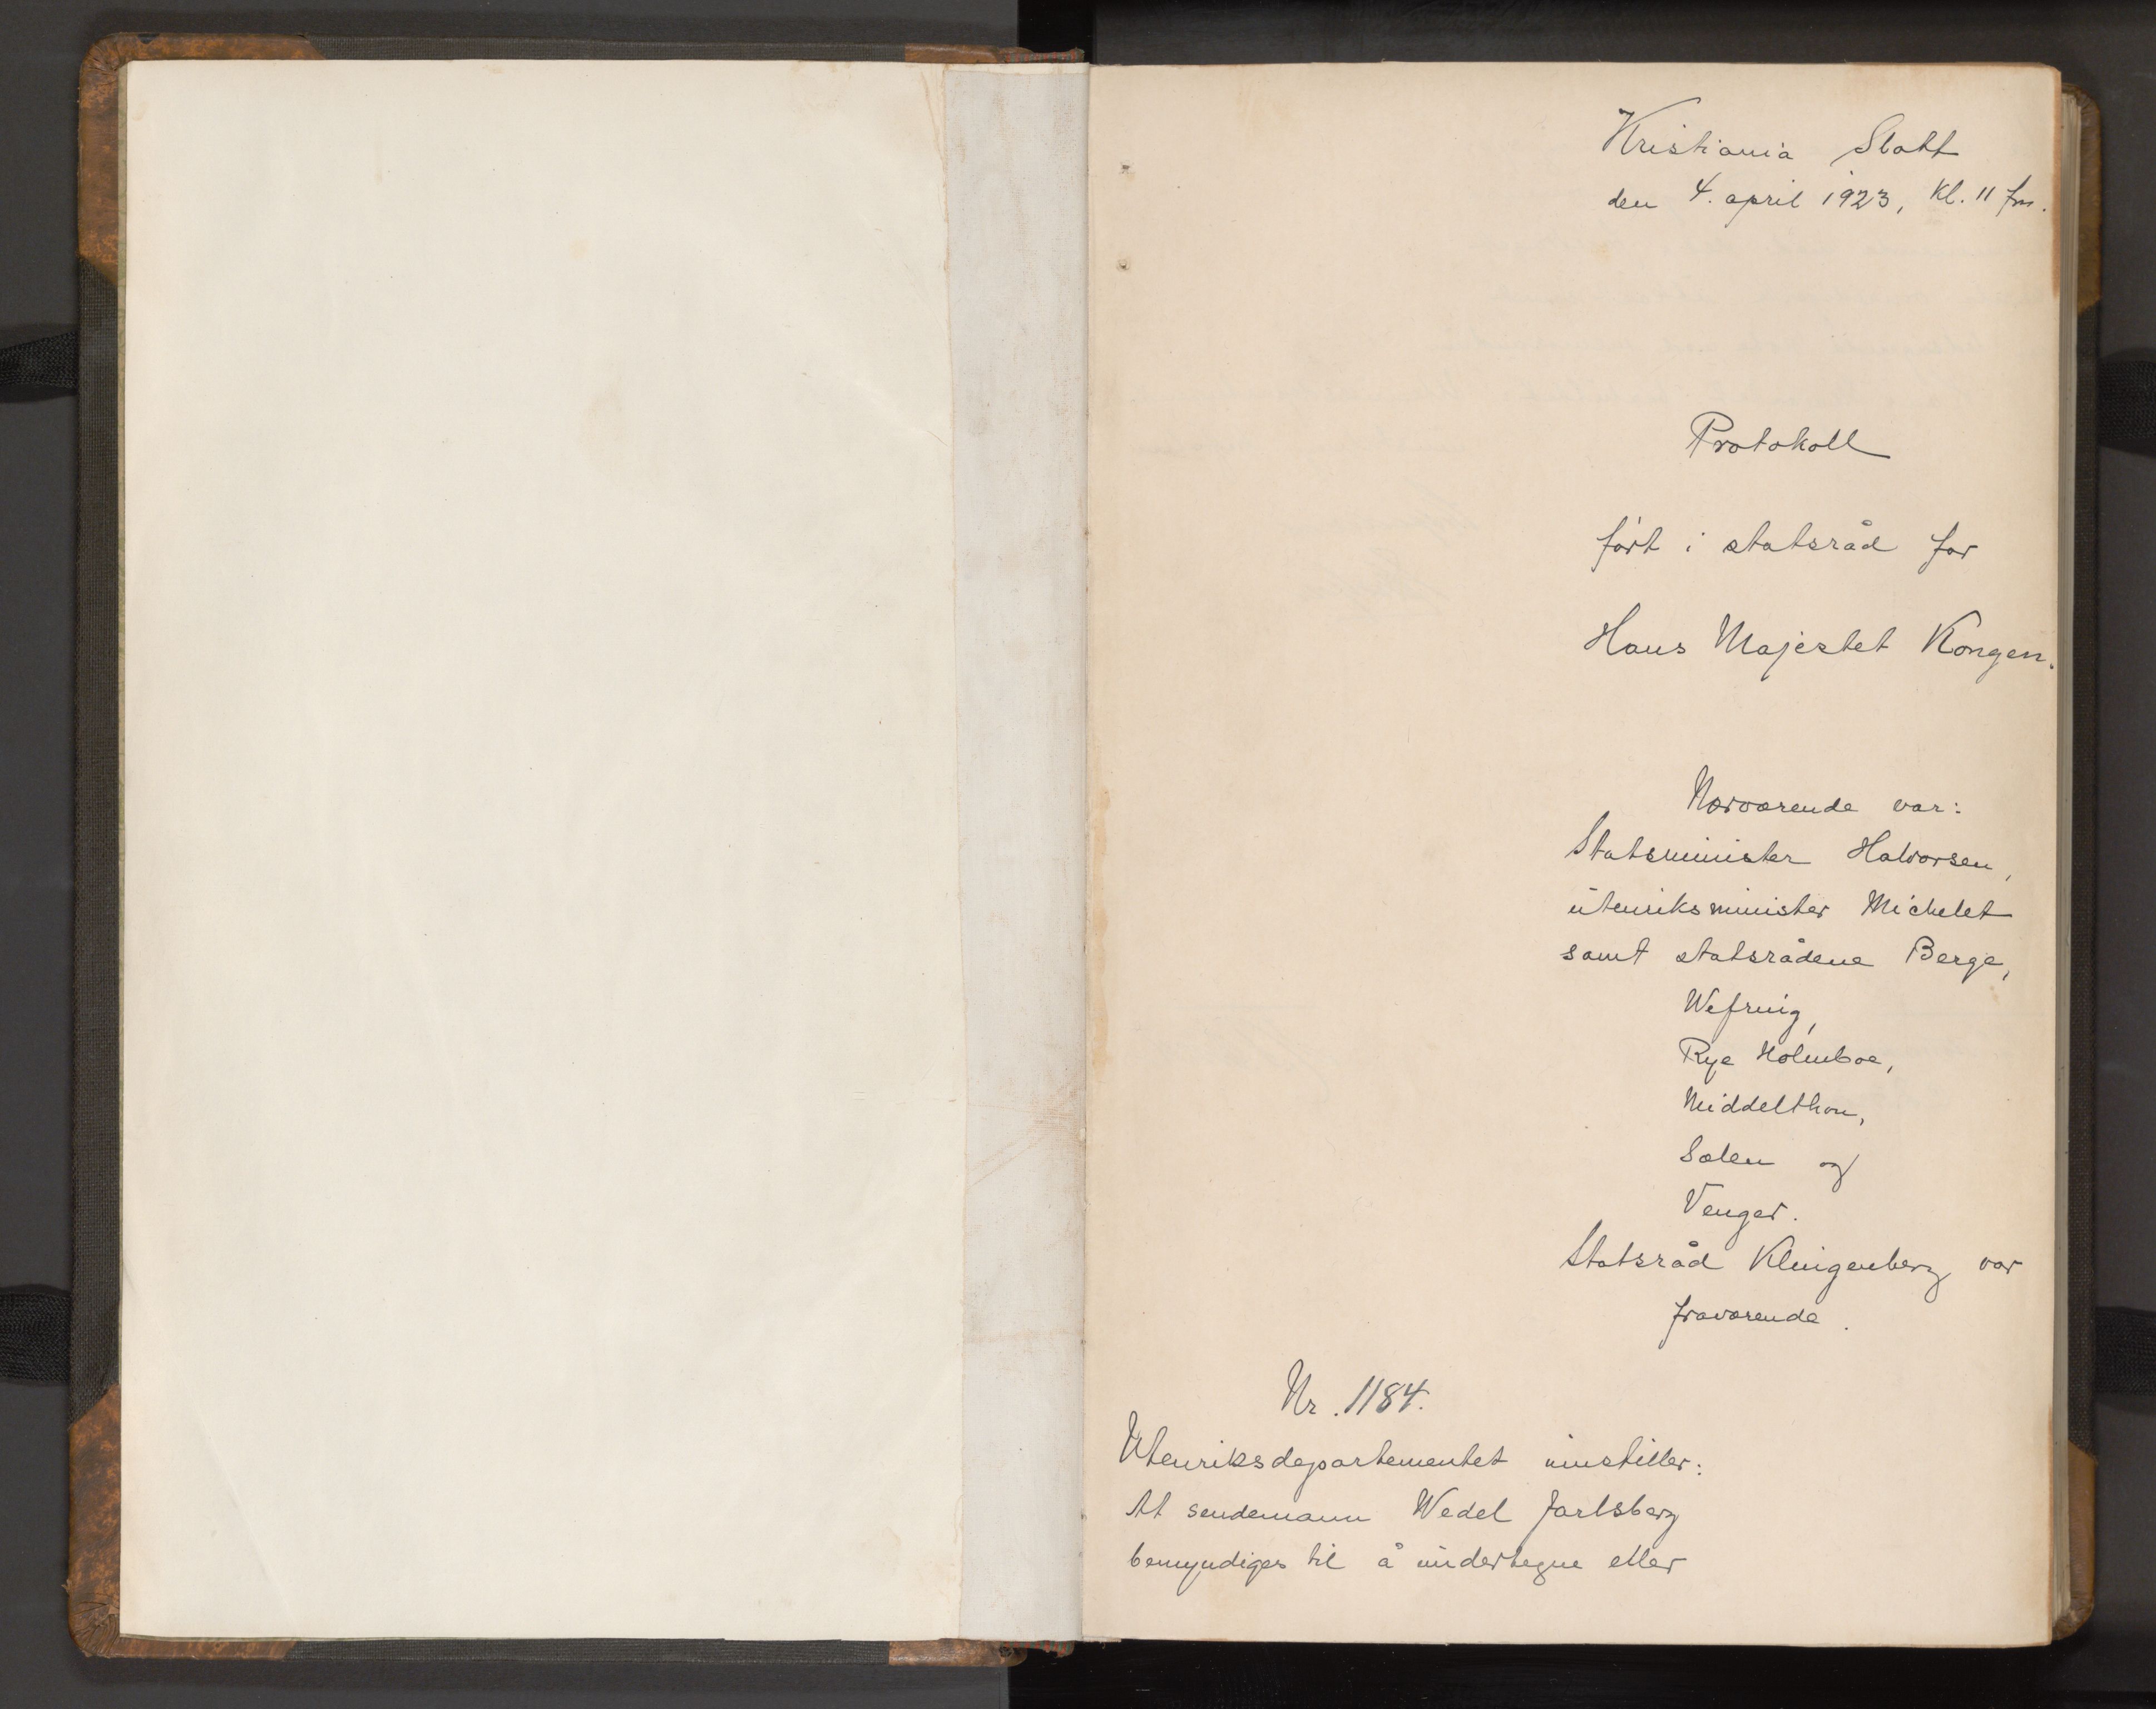 Kristiania Slott
den 4. april 1923, kl. 11 fm.
Protokoll
ført i statsråd for
Hans Majestet Kongen.
Nærværende var:
Statsminister Halvorsen,
utenriksminister Michelet
samt statsrådene Berge,
Wefring,
Rye Holmboe,
Middelthon,
Sælen og
Venger.
Statsråd Klingenberg var
fraværende.
Nr. 1184.
Utenriksdepartementet innstiller:
At sendemann Wedel Jarlsberg
bemyndiges til å undertegne eller